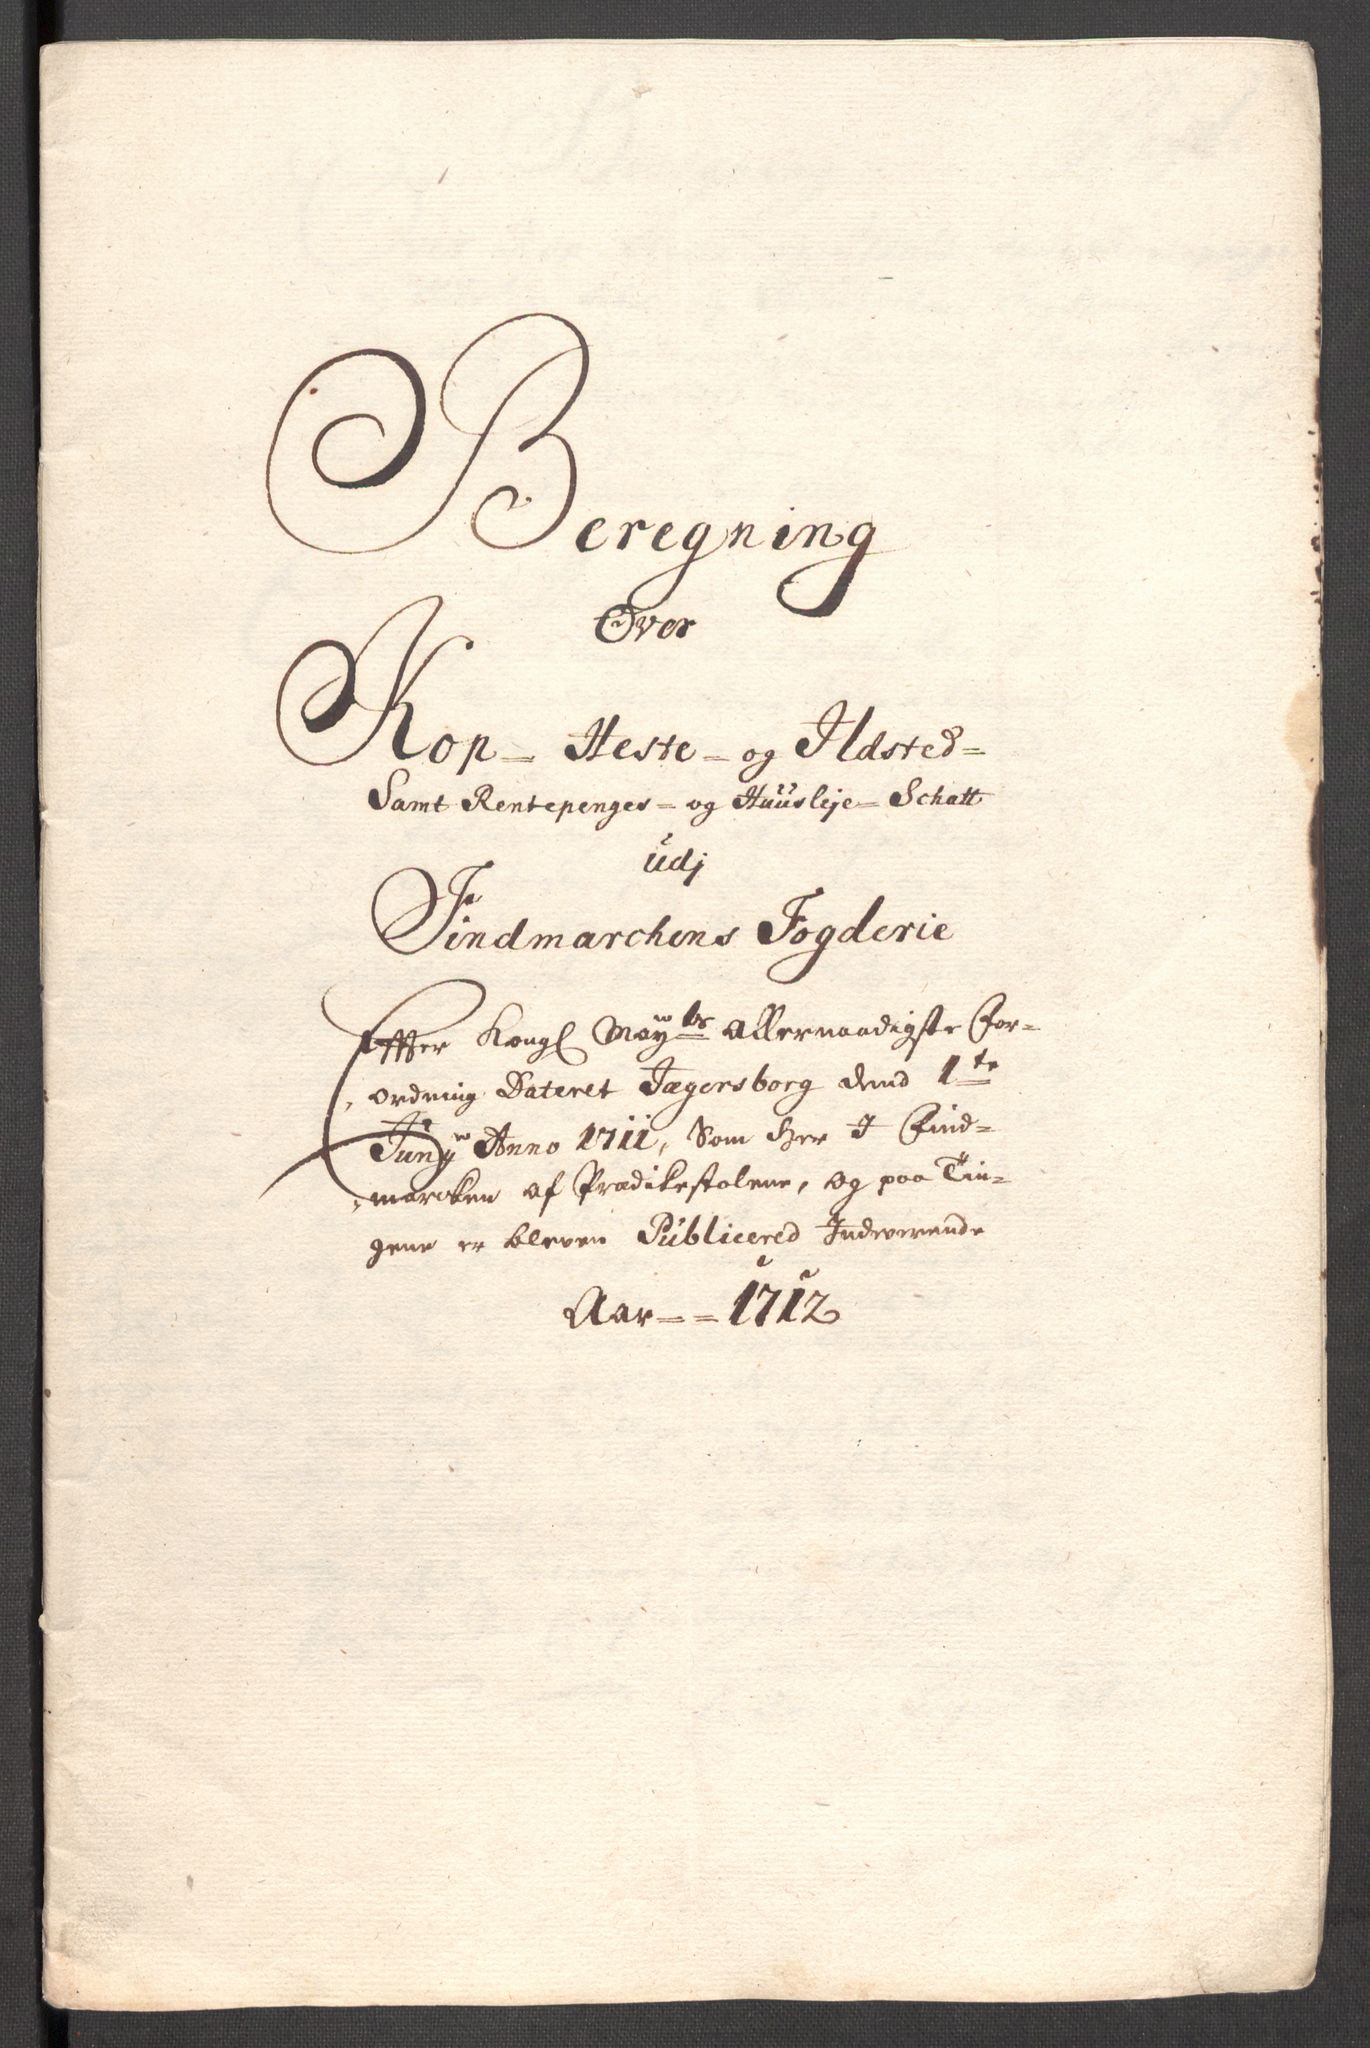 Beregning
Over
Kop= Heste= og Ildsted=
Samt Rentepenges= og Huusleje= Schatt
udj
Findmarchens Fogderie
Effter Kongl Mayts allernaadigste For=
ordning Dateret Jægersborg dend 1te
Juny Anno 1711, Som her I Find=
marcken af Prædikestolene, og paa Tin=
gene er bleven Publicered Indeværende
Aar== 1712